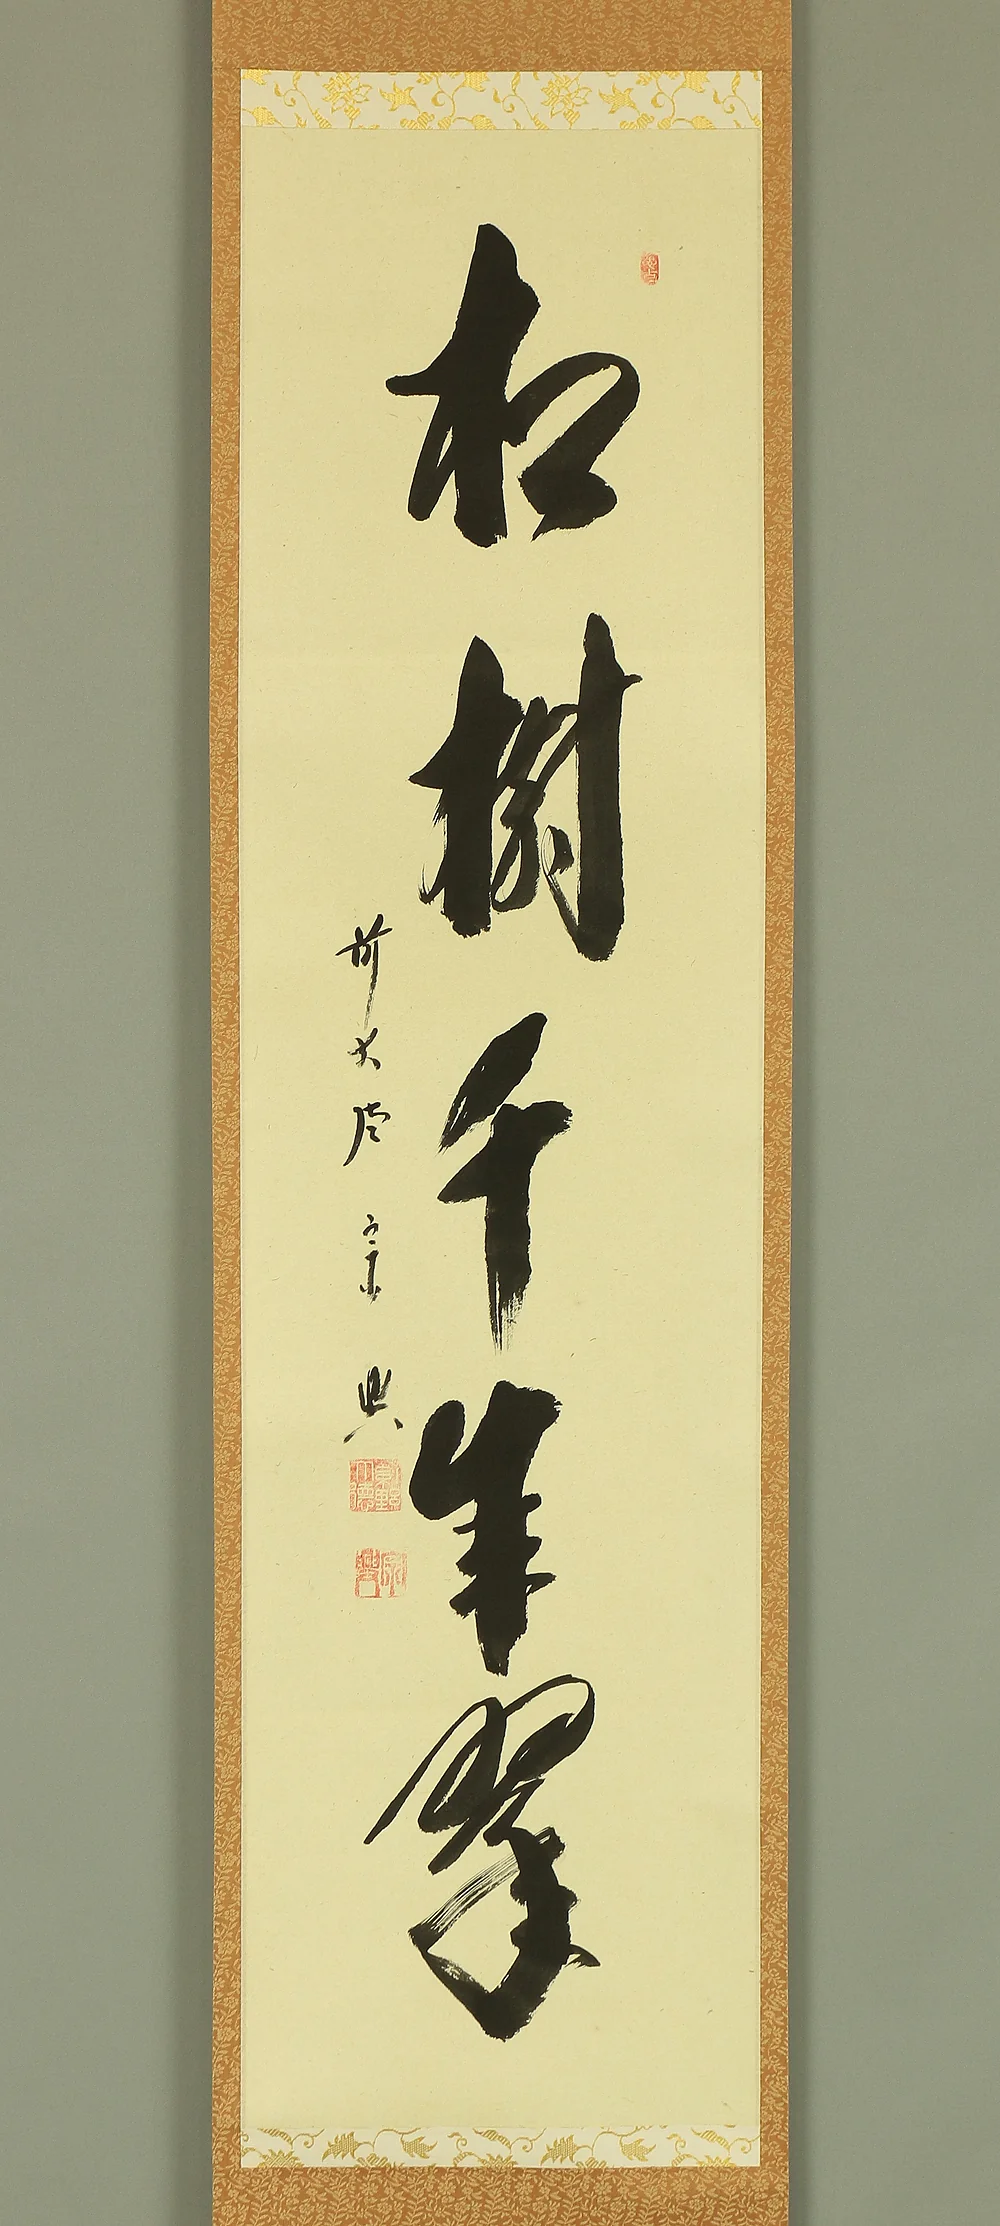 松樹千年翠
前大徳宗興